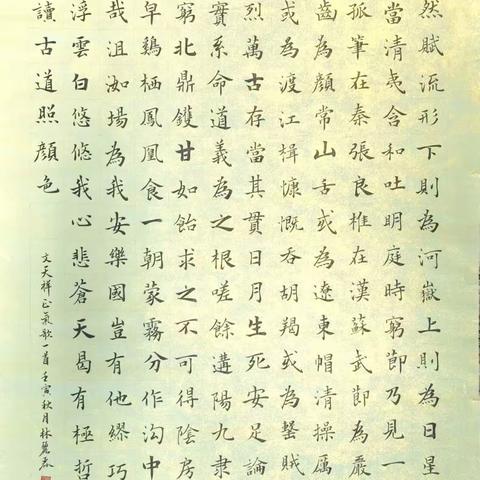 然賦流形下則為河嶽上則為日星
當清夷含和吐明庭時窮節乃見一
孤筆在秦張良椎在漢蘇武節為嚴
齒為顏常山舌或為遼東帽清操厲
或為渡江楫慷慨吞胡羯或為擊賊
烈萬古存當其貫日月生死安足論
實系命道義為之根嗟餘遘陽九隶
窮北鼎鑊甘如飴求之不可得陰房
早鷄栖鳳凰食一朝蒙霧分作沟中
哉沮洳場為我安樂國豈有他繆巧
浮雲白悠悠我心悲蒼天曷有極哲
讀古道照顏色
文天祥正氣歌一首 壬寅秋月林麗